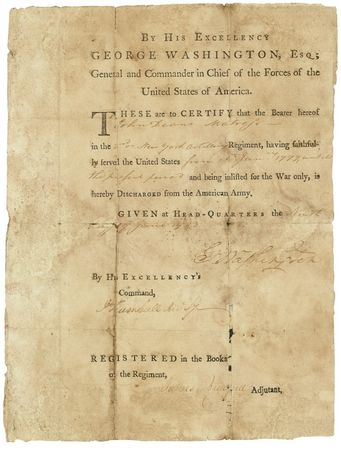 BY HIS EXCELLENCY
GEORGE WASHINGTON, Esq;
General and Commander in Chief of the Forces of the
United States of America.
THESE are to CERTIFY that the Bearer hereof
John
in the New York Regiment, having faithful-
ly served the United States from
the present period and being inlisted for the War only, is
hereby DISCHARGED from the American Army.
GIVEN at HEAD-QUARTERS the
G Washington
BY HIS EXCELLENCY'S
Command,
J Trumbull
REGISTERED in the Books
of the Regiment,
Adjutant,